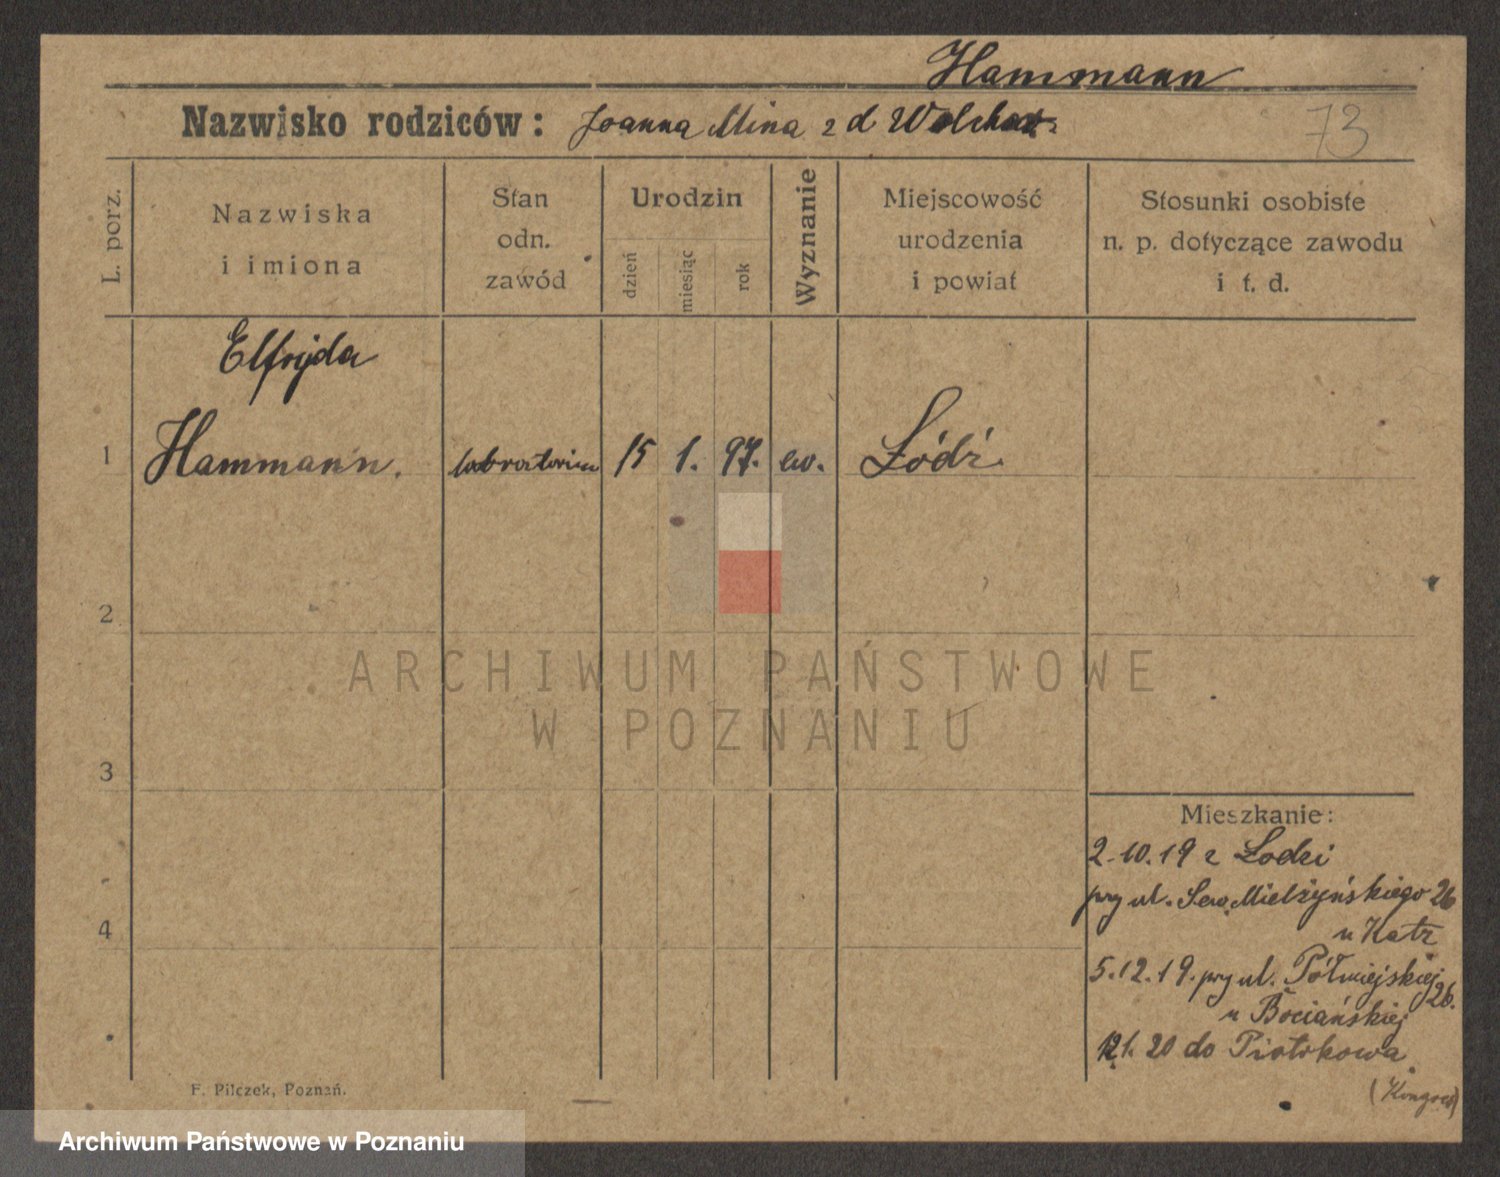 Hammann
Nazwisko rodziców: Joanna Mina z d
73
L. porz.
Nazwiska
i imiona
Stan
odn.
zawód
Urodzin
dzień
miesiąc
rok
Wyznanie
Miejscowość
urodzenia
i powiat
Stosunki osobiste
n. p. dotyczące zawodu
i t. d.
Elfryda
1 Hammann. 15 1. 97. ew. Łódź.
2
ARCHIWUM PAŃSTWOWE
W POZNANIU
3
Mieszkanie:
2.10.19 z Łodzi
przy ul. Sew. Mielżyńskiego 26
u Katz
4
5.12.19. przy ul. Półwiejskiej 26.
u Bociańskiej
12.1. 20 do Piotrkowa
F. Pilczek, Poznań.
Archiwum Państwowe w Poznaniu